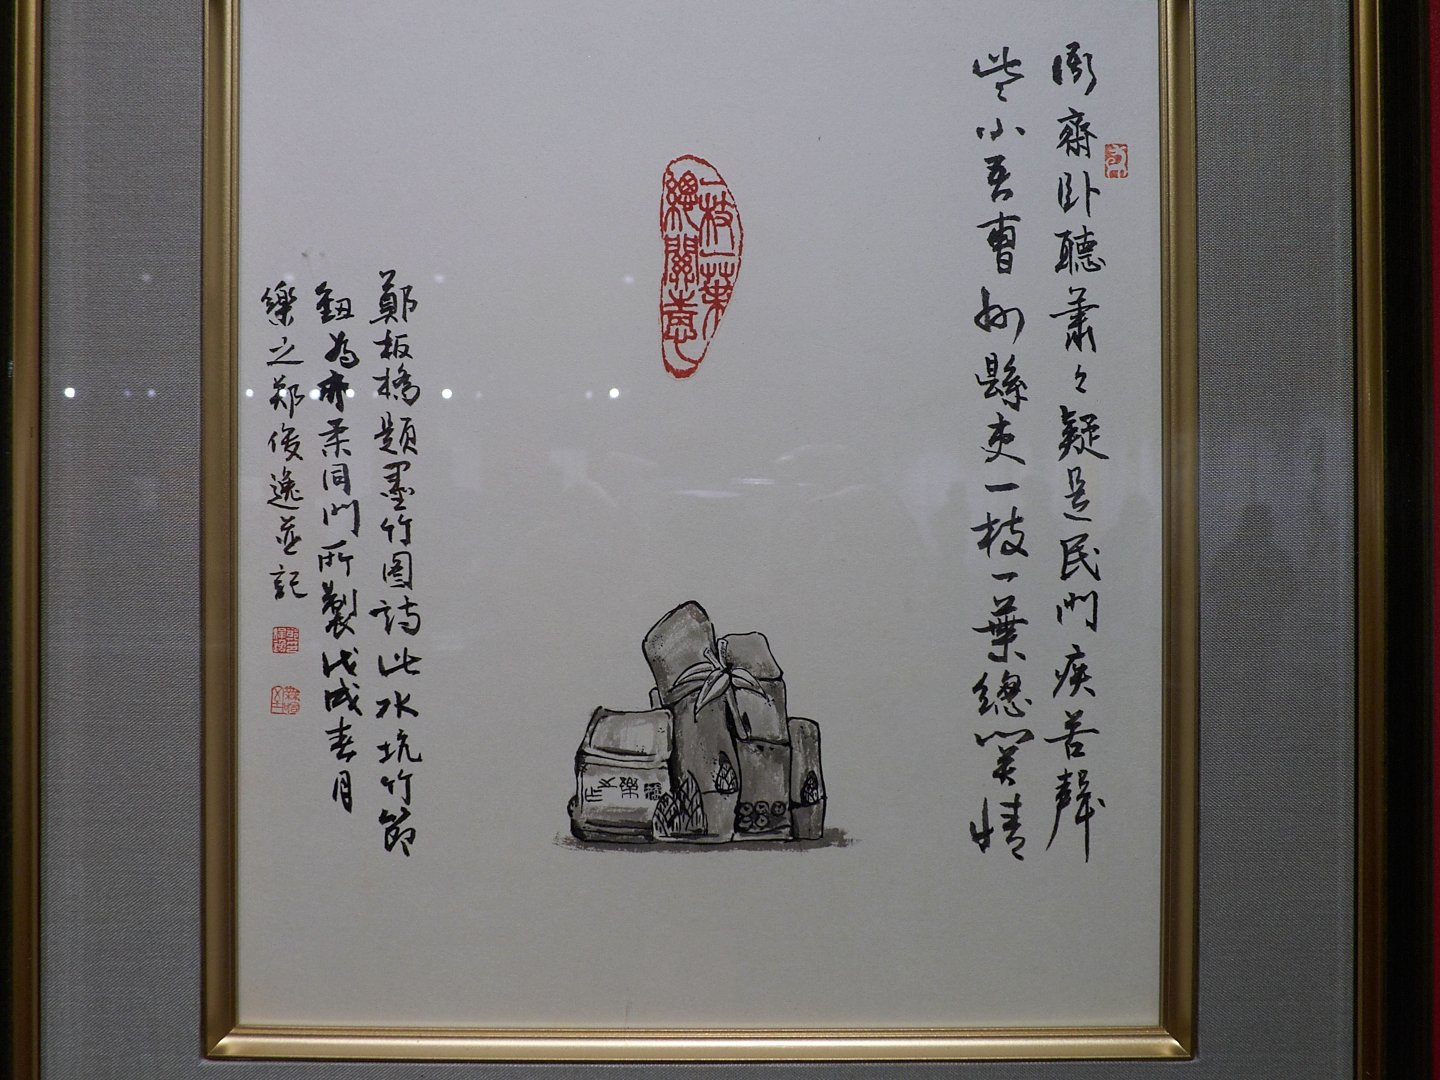 衙齋卧聽蕭々疑是民間疾苦聲
些小吾曹州縣吏一枝一葉總關情
一枝一葉
總關意
鄭板橋題墨竹图詩此水坑竹節
鈕為齊柔同門所製戊戌春月
樂之鄭俊逸並記